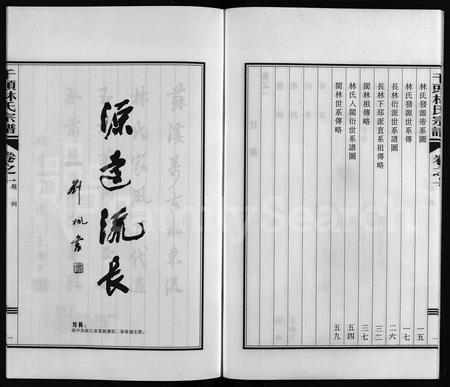 千頭林氏宗譜 卷之一
林氏發源帝系圖 一五
林氏發源世系傳略 一七
長林衍派世系譜圖 二六
長林下邳派直系祖傳略 三二
閩林祖傳略 三七
林氏入閩衍世系譜圖 五四
閩林世系傳略 五九
源遠流長
劉楓書
刘枫：
千頭林氏宗譜 卷之一 題詞 一
FamilySearch